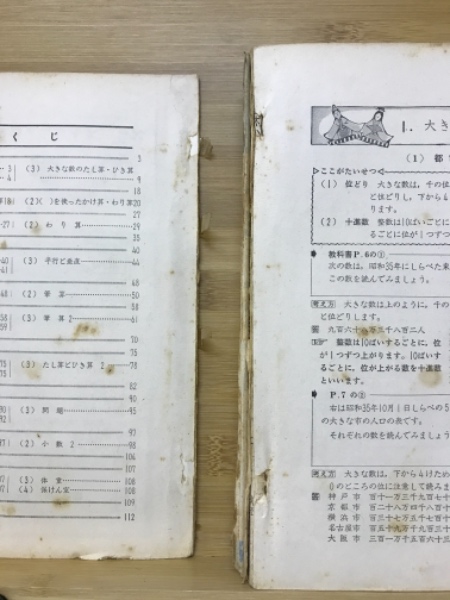 くじ
3
3 (3) 大きな数のたし算・ひき算
4
9
18
(2)( )を使ったかけ算・わり算 20
27
27 (2) わり算 29
35
40
40 (3) 平行と垂直 44
41
48
48 (2) 筆算 50
58 (3) 筆算 2 61
59
70
75
73 (3) たし算とひき算 2 78
73
82
90
90 (3) 問題 95
92
97
97 (2) 小数 2 98
106
107
107 (3) 体育 108
107 (4) 保けん室 108
108
112
1. 大き
(1) 都
ここがたいせつ
(1) 位どり 大きな数は、千の位
と位どりし、下から4
ります。
(2) 十進数 整数は10ばいごとに
るごとに位が1つずつ
教科書P.6の①
次の数は、昭和35年にしらべた東
この数を読んでみましょう。
考え方 大きな数は上のように、千の
と位どりします。
答 九百六十八万三千八百二人
整数は10ばいするごとに、位
が1つずつ上がります。10ばいす
るごとに、位が上がる数を十進数
といいます。
P.7の②
右は昭和35年10月1日しらべの5
の大きな市の人口の表です。
それぞれの数を読んでみましょう
考え方 大きな数は、下から4けため
0のどころの位に注意して読みま
答 神戸市 百十一万三千九百七十
京都市 百二十八万四千八百
横浜市 百三十七万五千七百十
名古屋市 百五十九万千九百三十
大阪市 三百一万千五百六十三